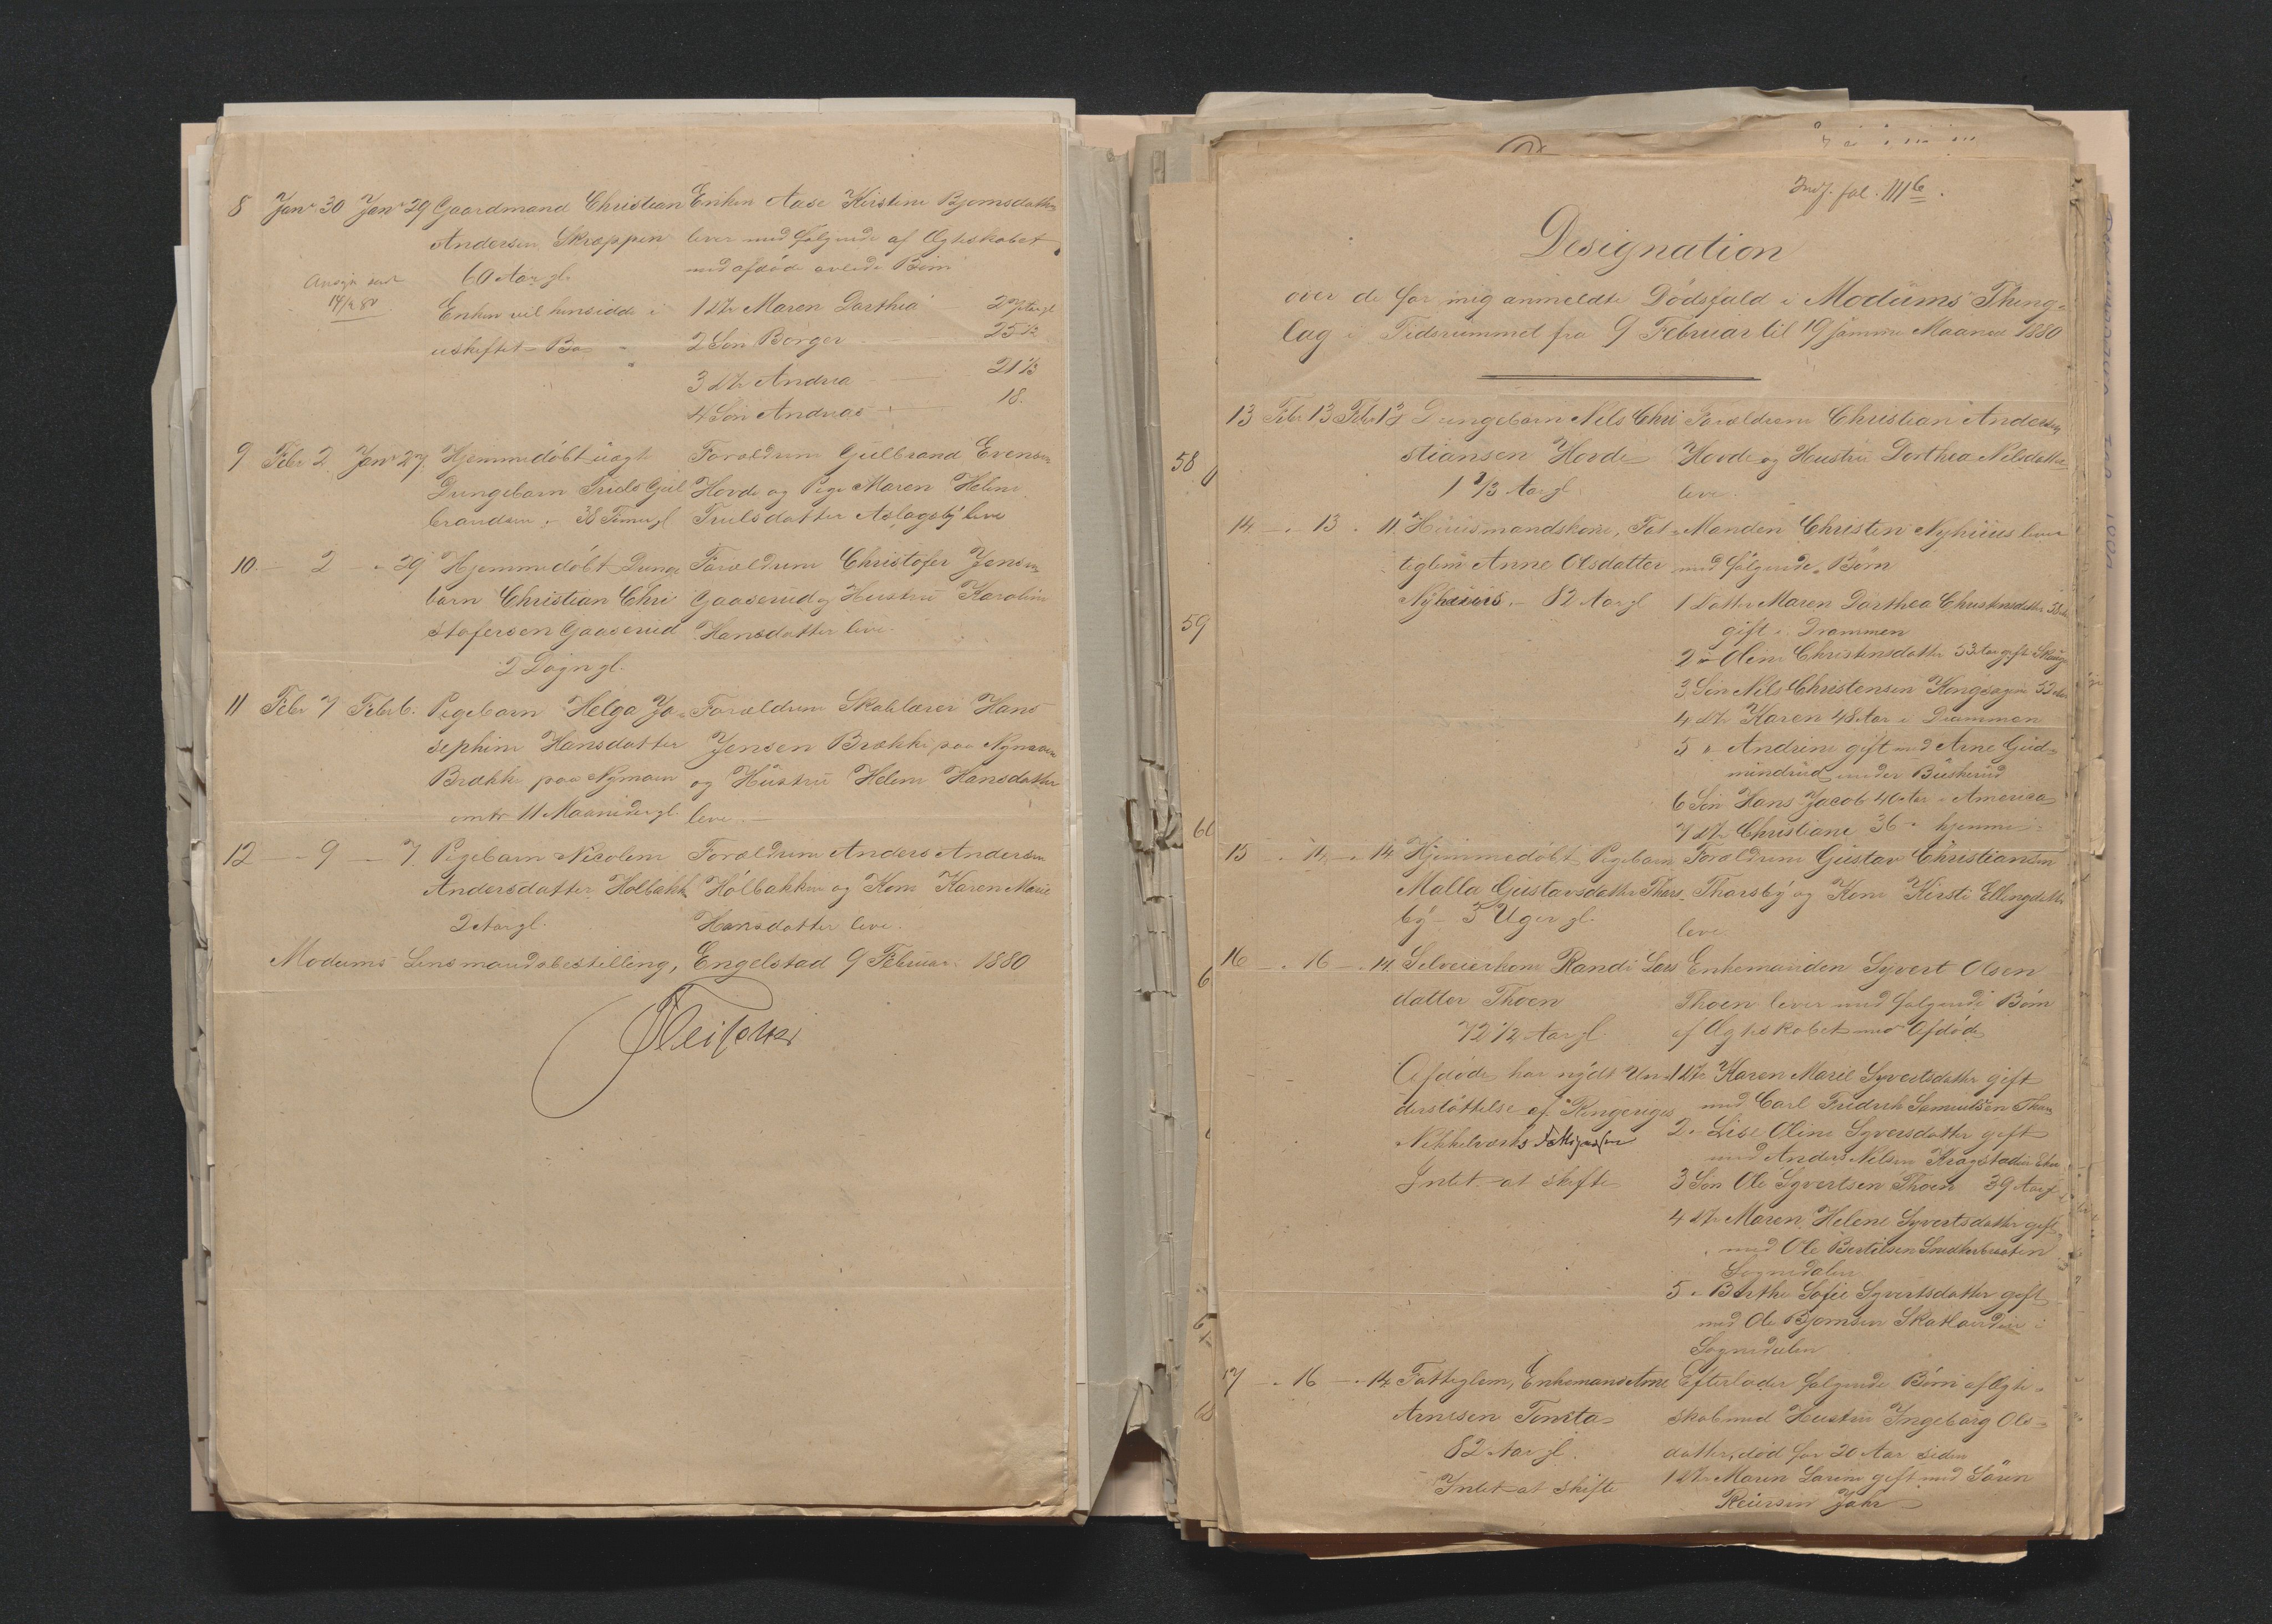 8 Janr 30 Janr 29 Gaardmand Christian Enken Aase Kirstine Bjornsdatter
Andersen Skreppen lever med følgende af Ægteskabet
60 Aar gl. med afdøde avlede Børn
14/2 80
Enken vil hensidde i 1 Dtr Maren Dorthea 27 Aar gl
uskiftet Bo 2 Søn Borger 25 1/2
3 Dtr Andrea 21 1/2
4 Søn Andreas 18.
9 Febr 2. Janr 27. Hjemmedøbt uægte Forældrene Gulbrand Evensen
Drengebarn Truls Gul Hovde og Pige Maren Helene
brandsen, 38 Timer gl Trulsdatter Aslagsby leve
10. - 2 - 29 Hjemmedøbt Drenge Forældrene Christofer Jensen
barn Christian Chri Gaaserud og Hustru Karoline
stofersen Gaaserud Hansdatter leve.
2 Døgn gl.
11 Febr 7 Febr 6. Pigebarn Helga Jo- Forældrene Skolelærer Hans
sephine Hansdatter Jensen Brække paa Nymoen
Brække paa Nymoen og Hustru Helene Hansdatter
omtr 11 Maaneder gl. leve.
12 - 9 - 7. Pigebarn Nicoline Forældrene Anders Andersen
Andersdatter Holbækk Holbækken og Kone Karen Marie
2 Aar gl. Hansdatter leve.
Modums Lensmandsbestilling, Engelstad 9 Februar 1880
Indf. fol. 111 b.
Designation
over de for mig anmeldte Dødsfald i Modums Thing-
lag i Tidsrummet fra 9 Februar til 19 samme Maaned 1880
13 Febr 13 Febr 13 Drengebarn Nils Chri Forældrene Christian Andersen
stiansen Hovde Hovde og Hustru Dorthea Nilsdatter
1 1/3 Aar gl. leve.
14 - 13 . 11. Huusmandskone, Fat- Manden Christen Nyhuus lever
tiglem Anne Olsdatter med følgende Børn
Nyhuus. - 82 Aar gl 1 Datter Maren Dorthea Christensdatter
gift i Drammen
2 " Oline Christensdatter 53 Aar gift
3 Søn Nils Christensen Kongsagen 52 Aar
4 Dtr Karen 48 Aar i Drammen
5 " Andrine gift med Arne Gud-
mindrud under Buskerud
6 Søn Hans Jacob 40 Aar i America
7 Dtr Christiane 36 " hjemme
15 - 14 - 14 Hjemmedøbt Pigebarn Forældrene Gustav Christiansen
Malla Gustavsdatter Thors- Thorsby og Kone Kirsti Ellingsdatter
by - 3 Uger gl. leve
16 - 16 - 14 Selveierkone Randi Lars Enkemanden Syvert Olsen
datter Thoen Thoen lever med følgende Børn
72 1/2 Aar gl. af Ægteskabet med Afdøde
Afdøde har nydt Un- 1 Dtr Karen Marie Syvertsdatter gift
derstøttelse af Ringeriges med Carl Fredrik Samuelsen Thoen
Nikkelverks Fattigkasse 2 " Lise Oline Syversdatter gift
med Anders Nilsen Kragstad i Eker
Intet at skifte 3 Søn Ole Syvertsen Thoen 39 Aar gl
4 Dtr Maren Helene Syvertsdatter gift
med Ole Bertilsen Snedkerbraaten
Sognedalen
5 " Berthe Sofie Syvertsdatter gift
med Ole Bjornsen i
Sognedalen
17 - 16 - 14 Fattiglem, Enkemand Arne Efterlader følgende Børn af Ægte-
Arnesen Tonsta skab med Hustru Ingeborg Ols-
82 Aar gl. datter, død for 20 Aar siden
Intet at skifte 1 Dtr Maren Sarine gift med Søren
Reiersen Jahr
58
59